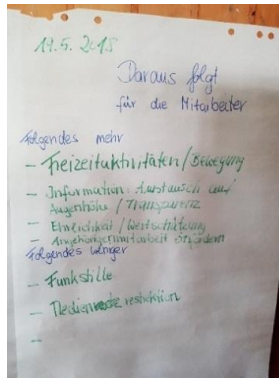 14.5.2018
Daraus folgt
für die Mitarbeiter
Folgendes mehr
- Freizeitaktivitäten / Bewegung
- Information: Austausch auf
Augenhöhe / Transparenz
- Ehrlichkeit / Wertschätzung
- Angehörigenmitarbeit einfordern
Folgendes weniger
- Funkstille
- Medien restriktion
-